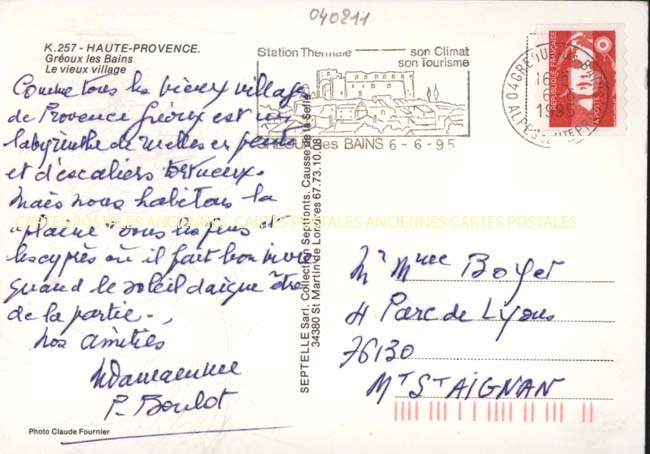 040211
K.257 - HAUTE-PROVENCE.
Gréoux les Bains
Le vieux village
Comme tous les vieux villages
de Provence Gréoux est un
labyrinthe de ruelles en pente
et d'escaliers tortueux.
Mais nous habitons la
"plaine" sous les pins et
les cyprès où il fait bon vivre
quand le soleil daigne être
de la partie.
Nos amitiés
P. Boulot
Photo Claude Fournier
SEPTELLE Sarl. Collection Septfonts. Causse de la Selle
34380 St Martin de Londres 67.73.10.08
Station Thermale son Climat
son Tourisme
GREOUX les BAINS 6-6-95
04 GREOUX LES BAINS
1995
ALPES HTE P
REPUBLIQUE FRANÇAISE
LA POSTE
Mr Mme Boyer
4 Parc de Lyons
76130
Mt St AIGNAN
CARTES POSTALES ANCIENNES CARTES POSTALES ANCIENNES CARTES POSTALES